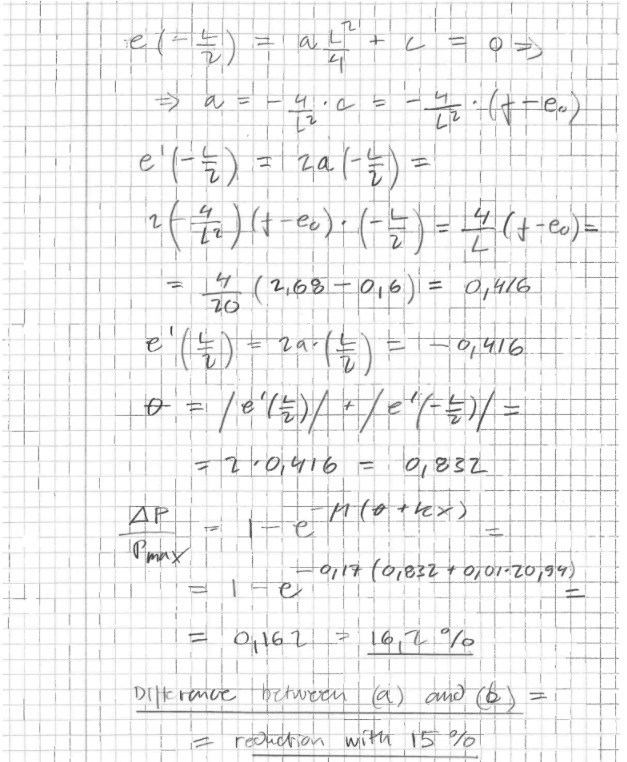 e(-L/2) = a L²/4 + c = 0 ⇒
⇒ a = -4/L² · c = -4/L² · (f-e₀)
e'(-L/2) = 2a(-L/2) =
2(-4/L²)(f-e₀)·(-L/2) = 4/L (f-e₀) =
= 4/20 (2,68-0,6) = 0,416
e'(L/2) = 2a·(L/2) = -0,416
θ = /e'(L/2)/ + /e'(-L/2)/ =
= 2·0,416 = 0,832
ΔP/Pmax = 1-e^-μ(θ+kx) =
= 1-e^-0,17(0,832+0,01·20,94) =
= 0,162 = 16,2 %
Difference between (a) and (b) =
= reduction with 15 %